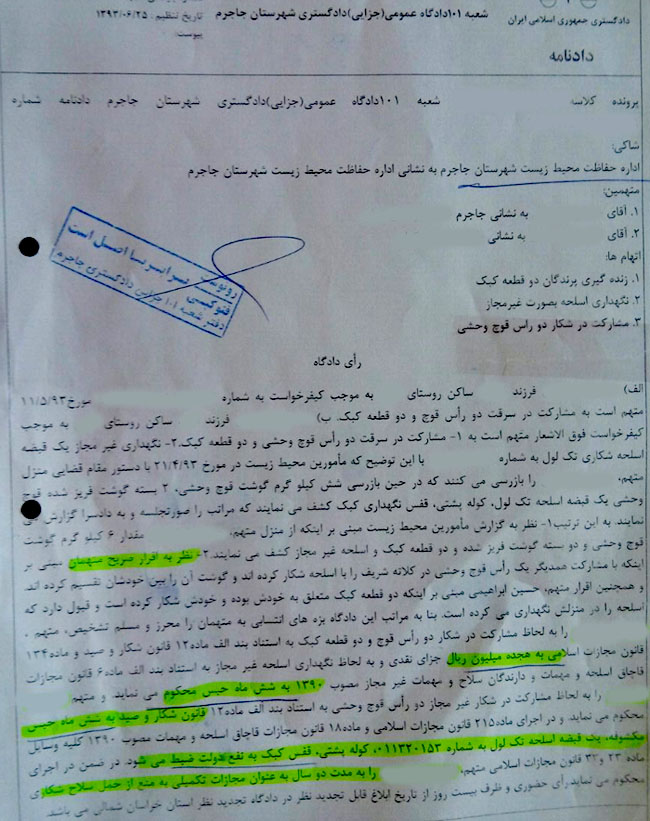 دادگستری جمهوری اسلامی ایران
شعبه ۱۰۱دادگاه عمومی(جزایی)دادگستری شهرستان جاجرم
تاریخ تنظیم : ۱۳۹۳/۰۶/۲۵
پیوست:
دادنامه
پرونده کلاسه شعبه ۱۰۱دادگاه عمومی(جزایی)دادگستری شهرستان جاجرم دادنامه شماره
شاکی:
اداره حفاظت محیط زیست شهرستان جاجرم به نشانی اداره حفاظت محیط زیست شهرستان جاجرم
متهمین:
۱. آقای به نشانی جاجرم
۲. آقای به نشانی
اتهام ها:
۱. زنده گیری پرندگان دو قطعه کبک
۲. نگهداری اسلحه بصورت غیرمجاز
۳. مشارکت در شکار دو راس قوچ وحشی
رونوشت
فتوکپی برابر با اصل است
دفتر شعبه ۱۰۱ جزایی دادگستری جاجرم
رأی دادگاه
الف) فرزند ساکن روستای به موجب کیفرخواست به شماره مورخ۱۱/۵/۹۳
متهم است به مشارکت در سرقت دو رأس قوچ و دو قطعه کبک. ب) فرزند ساکن روستای به موجب
کیفرخواست فوق الاشعار متهم است به ۱- مشارکت در سرقت دو رأس قوچ وحشی و دو قطعه کبک.۲- نگهداری غیر مجاز یک قبضه
اسلحه شکاری تک لول به شماره با این توضیح که مأمورین محیط زیست در مورخ ۲۱/۴/۹۳ با دستور مقام قضایی منزل
متهم، را بازرسی می کنند که در حین بازرسی شش کیلو گرم گوشت قوچ وحشی، ۲ بسته گوشت فریز شده قوچ
وحشی یک قبضه اسلحه تک لول، کوله پشتی، قفس نگهداری کبک کشف می نمایند که مراتب را صورتجلسه و به دادسرا گزارش می
نمایند. به این ترتیب۱- نظر به گزارش مأمورین محیط زیست مبنی بر اینکه از منزل متهم، مقدار ۶ کیلو گرم گوشت
قوچ وحشی و دو بسته گوشت فریز شده و دو قطعه کبک و اسلحه غیر مجاز کشف می نمایند.۲- نظر به اقرار صریح متهمان مبنی بر
اینکه با مشارکت همدیگر یک رأس قوچ وحشی در کلاته شریف را با اسلحه شکار کرده اند و گوشت آن را بین خودشان تقسیم کرده اند.
و همچنین اقرار متهم، حسین ابراهیمی مبنی بر اینکه دو قطعه کبک متعلق به خودش بوده و خودش شکار کرده است و قبول دارد که
اسلحه را در منزلش نگهداری می کرده است. بنا به مراتب این دادگاه بزه های انتسابی به متهمان را محرز و مسلم تشخیص، متهم ،
را به لحاظ مشارکت در شکار دو رأس قوچ و دو قطعه کبک به استناد بند الف ماده۱۲ قانون شکار و صید و ماده۱۳۴
قانون مجازات اسلامی به هجده میلیون ریال جزای نقدی و به لحاظ نگهداری اسلحه غیر مجاز به استناد بند الف ماده۶ قانون مجازات
قاچاق اسلحه و مهمات و دارندگان سلاح و مهمات غیر مجاز مصوب ۱۳۹۰ به شش ماه حبس محکوم می نماید. و متهم
را به لحاظ مشارکت در شکار غیر مجاز دو رأس قوچ وحشی به استناد بند الف ماده۱۲ قانون شکار و صید به شش ماه حبس
محکوم می نماید. و در اجرای ماده۲۱۵ قانون مجازات اسلامی و ماده۱۸ قانون مجازات قاچاق اسلحه و مهمات مصوب ۱۳۹۰ کلیه وسایل
مکشوفه، یک قبضه اسلحه تک لول به شماره ۰۱۱۳۲۰۱۵۳، کوله پشتی، قفس کبک به نفع دولت ضبط می شود. در ضمن در اجرای
ماده ۲۳ قانون مجازات اسلامی متهم، را به مدت دو سال به عنوان مجازات تکمیلی به منع از حمل سلاح شکاری
محکوم می نماید.رأی حضوری و ظرف بیست روز از تاریخ ابلاغ قابل تجدید نظر در دادگاه تجدید نظر استان خراسان شمالی می باشد.